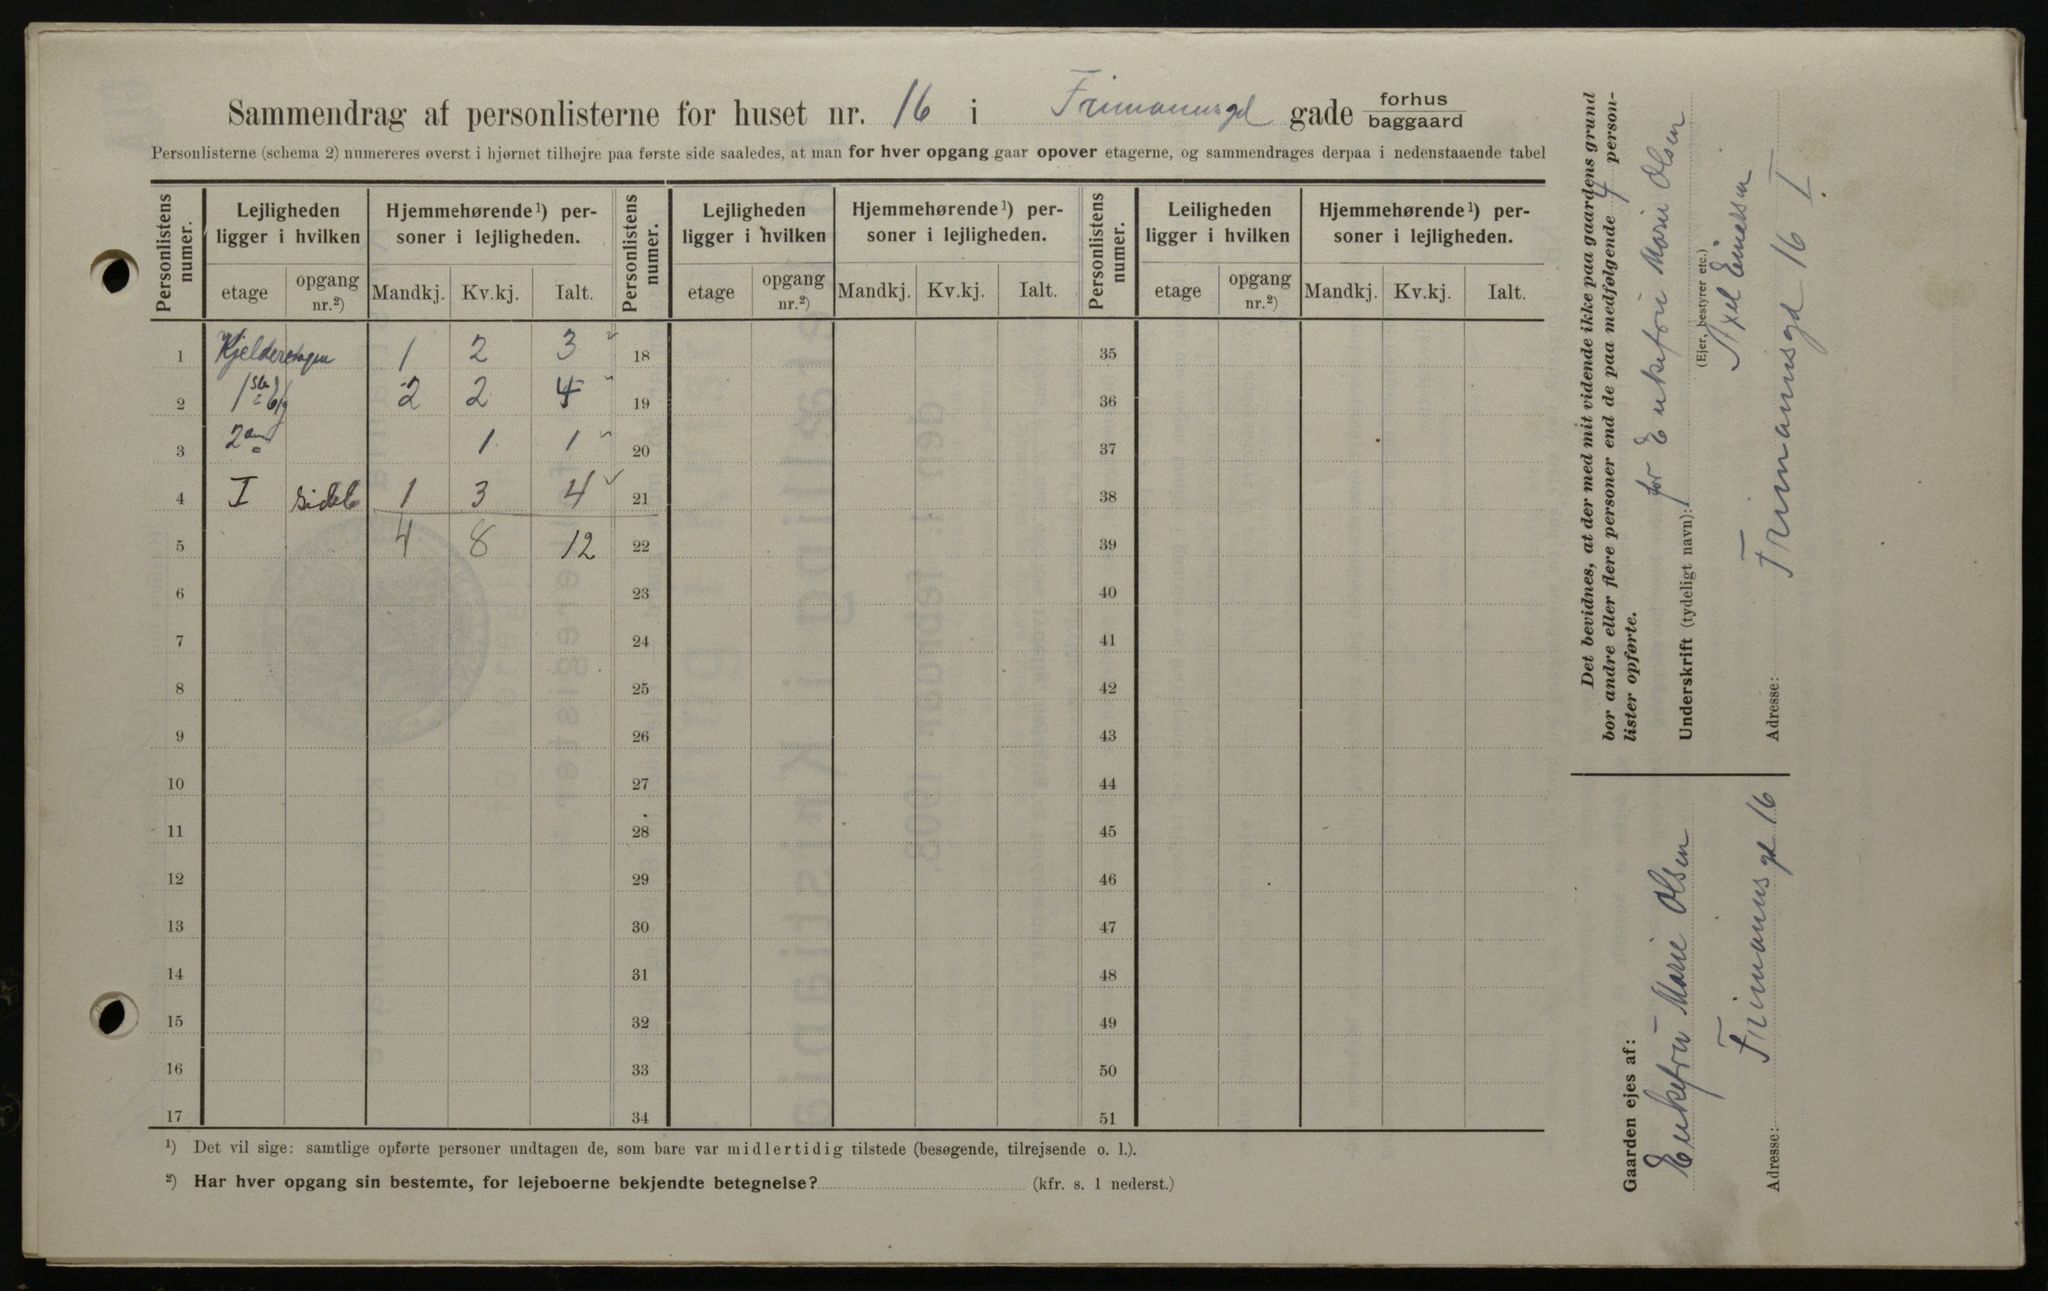 Sammendrag af personlisterne for huset nr. 16 i Frimannsgd gade forhus baggaard
Personlisterne (schema 2) numereres øverst i hjørnet tilhøjre paa første side saaledes, at man for hver opgang gaar opover etagerne, og sammendrages derpaa i nedenstaaende tabel
Personlistens numer. Lejligheden ligger i hvilken Hjemmehørende¹) personer i lejligheden. Personlistens numer. Lejligheden ligger i hvilken Hjemmehørende¹) personer i lejligheden. Personlistens numer. Leiligheden ligger i hvilken Hjemmehørende¹) personer i lejligheden.
etage opgang nr.²) Mandkj. Kv.kj. Ialt. etage opgang nr.²) Mandkj. Kv.kj. Ialt. etage opgang nr.²) Mandkj. Kv.kj. Ialt.
1 Kjelderetagen 1 2 3 18 35
2 1ste 2 2 4 19 36
3 2den 1 1 20 37
4 I Sideb 1 3 4 21 38
5 4 8 12 22 39
6 23 40
7 24 41
8 25 42
9 26 43
10 27 44
11 28 45
12 29 46
13 30 47
14 31 48
15 32 49
16 33 50
17 34 51
¹) Det vil sige: samtlige opførte personer undtagen de, som bare var midlertidig tilstede (besøgende, tilrejsende o. l.).
²) Har hver opgang sin bestemte, for lejeboerne bekjendte betegnelse? (kfr. s. 1 nederst.)
Det bevidnes, at der med mit vidende ikke paa gaardens grund
bor andre eller flere personer end de paa medfølgende 4 person-
lister opførte.
for Enkefru Marie Olsen
Underskrift (tydeligt navn):
(Ejer, bestyrer etc.)
Axel Einersen
Adresse: Frimannsgd 16 I
Gaarden ejes af:
Enkefru Marie Olsen
Adresse: Frimannsgd 16